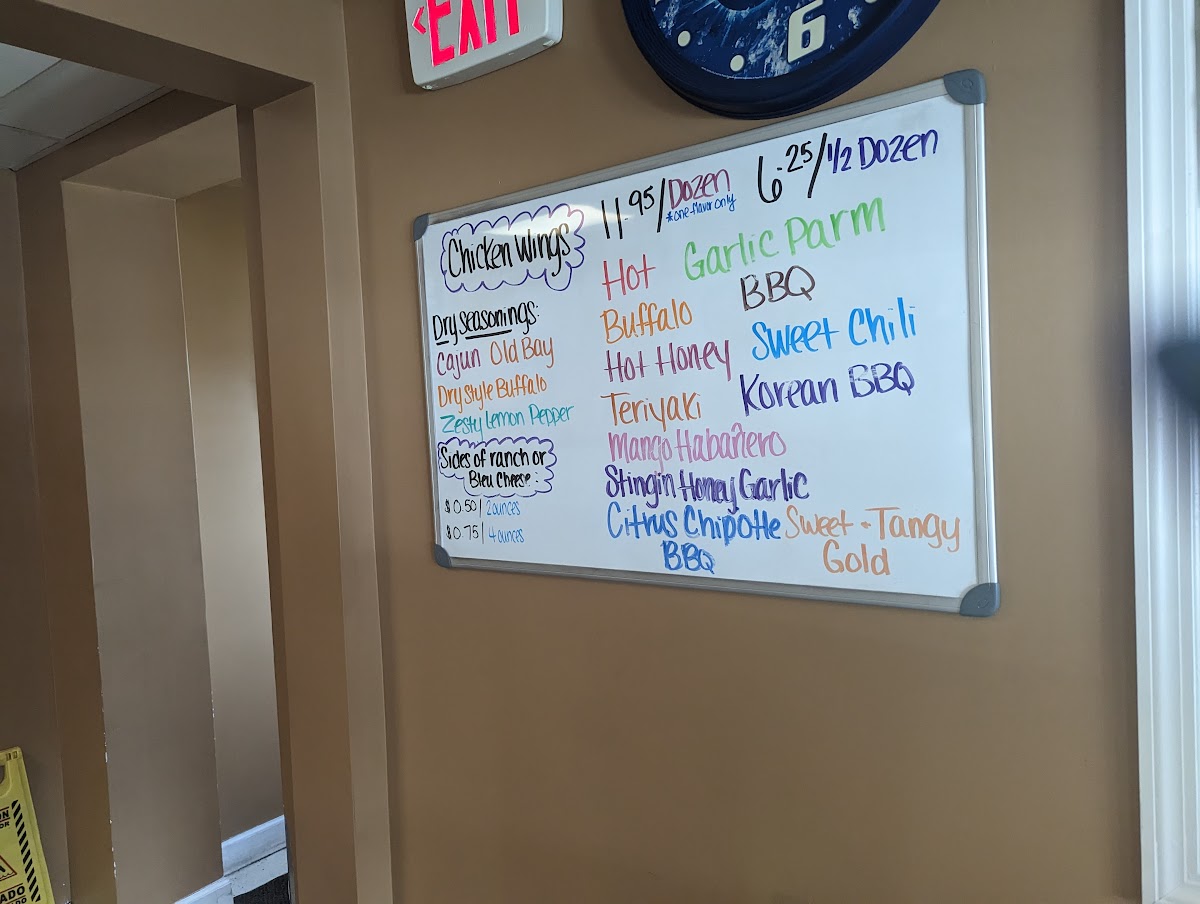 EXIT
6
Chicken Wings
11.95/Dozen
*one flavor only
6.25/1/2 Dozen
Dry seasonings:
Cajun Old Bay
Dry Style Buffalo
Zesty Lemon Pepper
Sides of ranch or
Bleu Cheese:
$0.50/2 ounces
$0.75/4 ounces
Hot
Garlic Parm
Buffalo
BBQ
Hot Honey
Sweet Chili
Teriyaki
Korean BBQ
Mango Habañero
Stingin Honey Garlic
Citrus Chipotle
BBQ
Sweet + Tangy
Gold